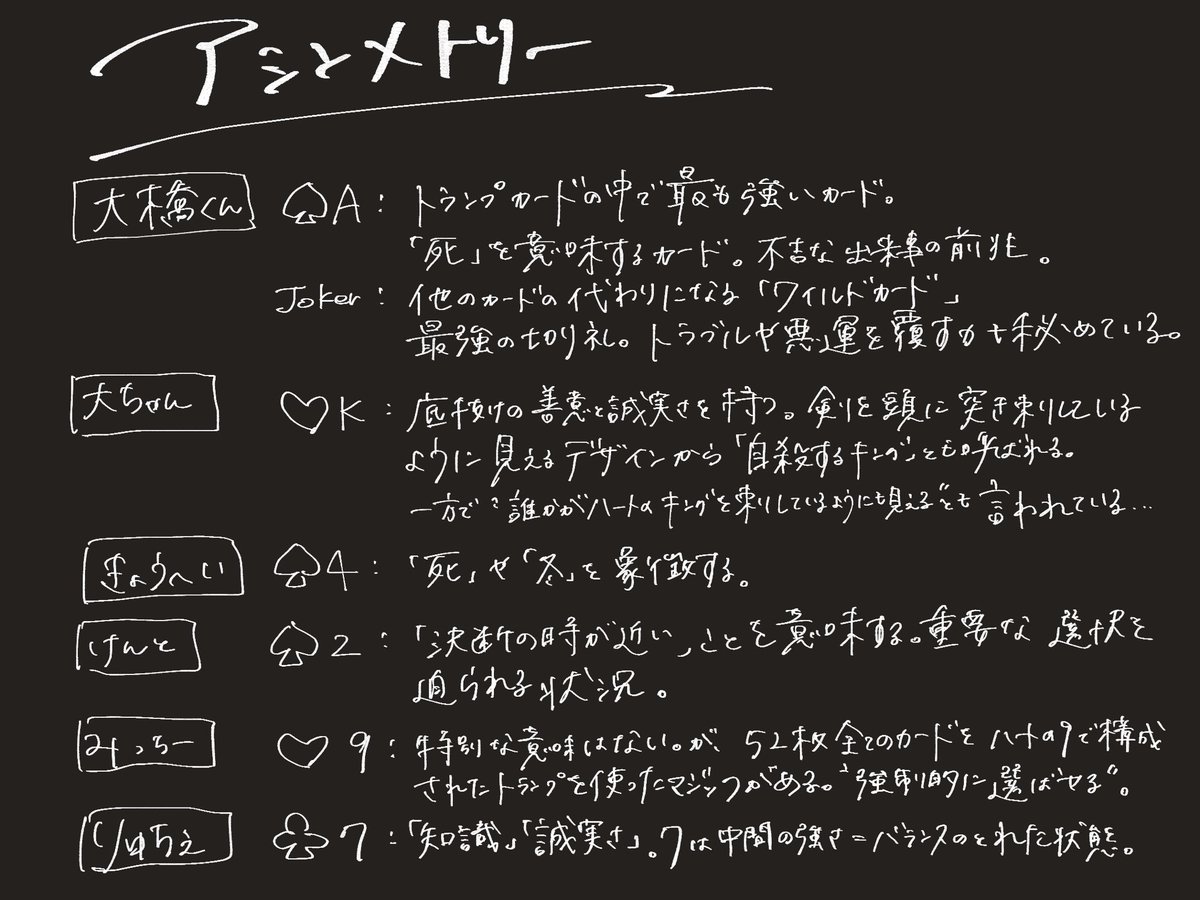 アシンメトリー
大橋くん ♤A：トランプカードの中で最も強いカード。
「死」を意味するカード。不吉な出来事の前兆。
Joker：他のカードの代わりになる「ワイルドカード」
最強の切り札。トラブルや悪運を覆す力も秘めている。
大ちゃん ♡K：底抜けの善意と誠実さを持つ。剣を頭に突き刺している
ように見えるデザインから「自殺するキング」とも呼ばれる。
一方で“誰かがハートのキングを刺しているようにも見える”とも言われている…
きょうへい ♤4：「死」や「冬」を象徴する。
けんと ♤2：「決断の時が近い」ことを意味する。重要な選択を
迫られる状況。
みっちー ♡9：特別な意味はない。が、52枚全てのカードをハートの9で構成
されたトランプを使ったマジックがある。“強制的に選ばせる”。
りゅちぇ ♧7：「知識」「誠実さ」。7は中間の強さ＝バランスのとれた状態。